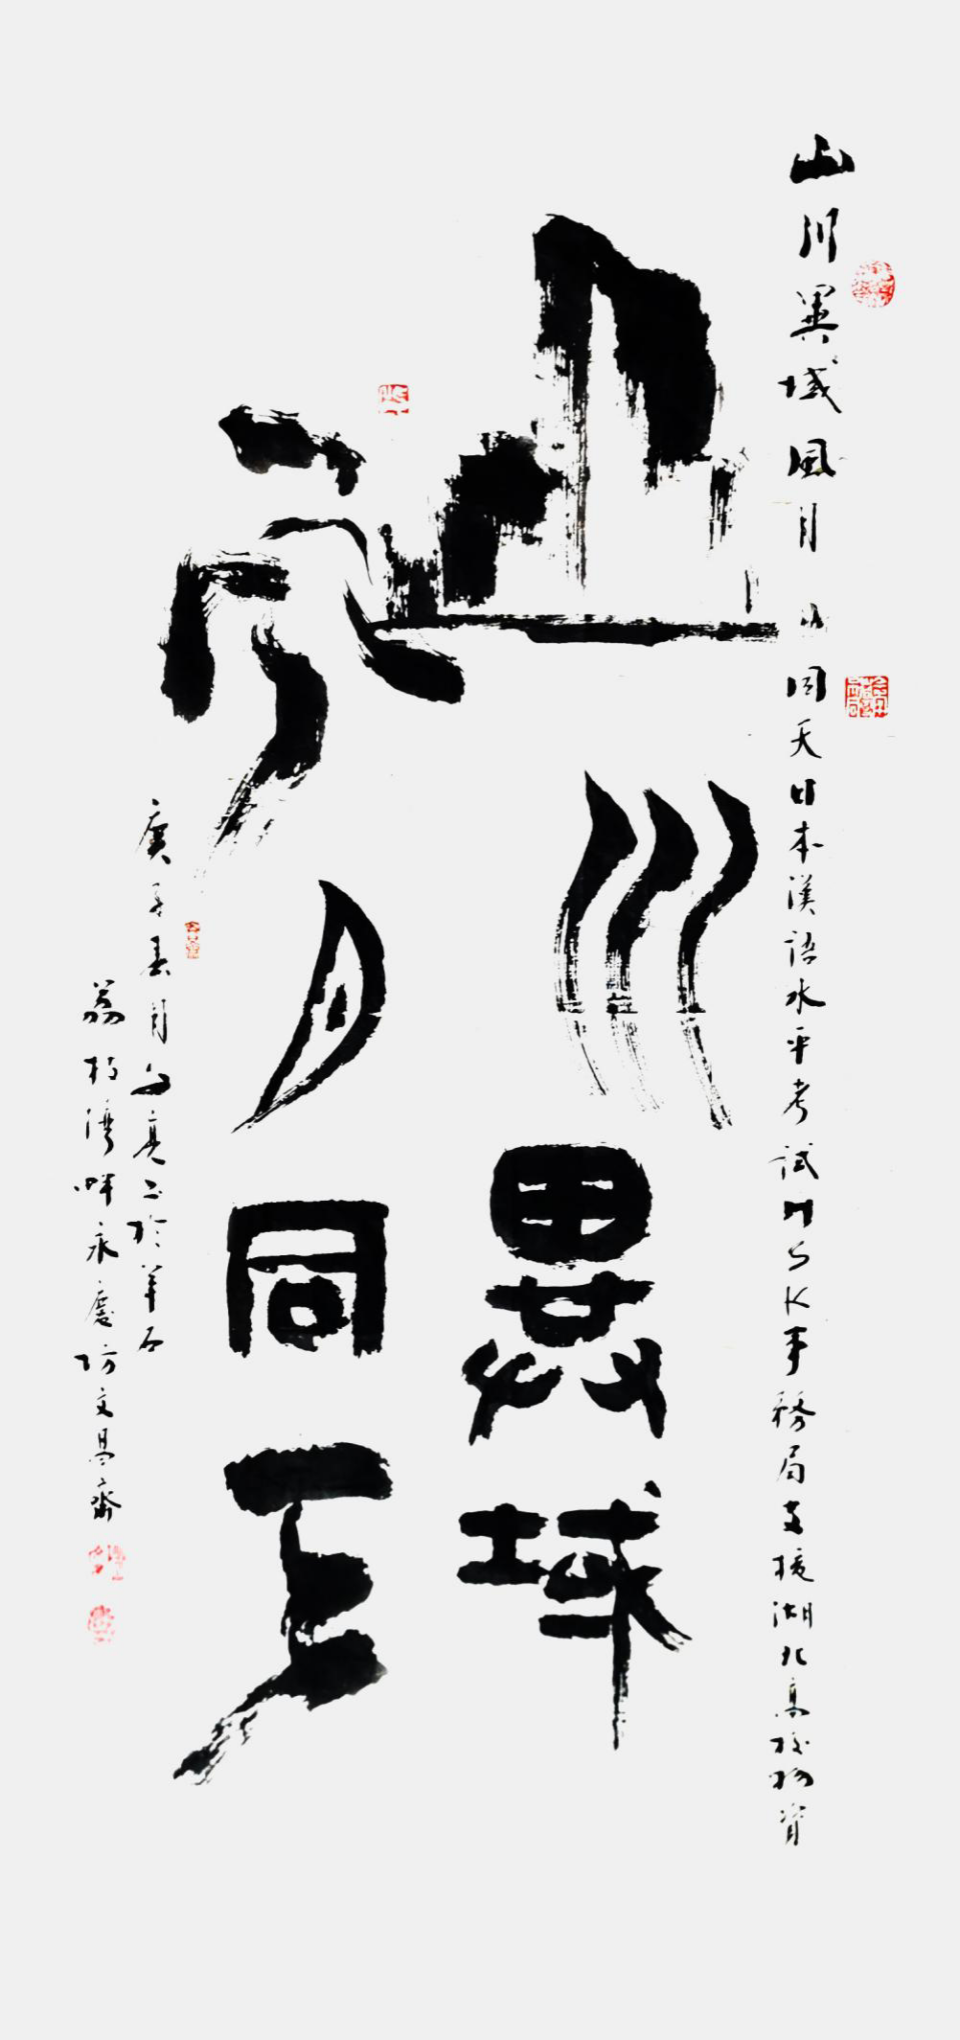 山川異域風月同天日本漢語水平考試HSK事務局支援湖北高校物資
山川異域
風月同天
庚子春月亮书於羊石
荔枝灣畔永慶坊文昌齋